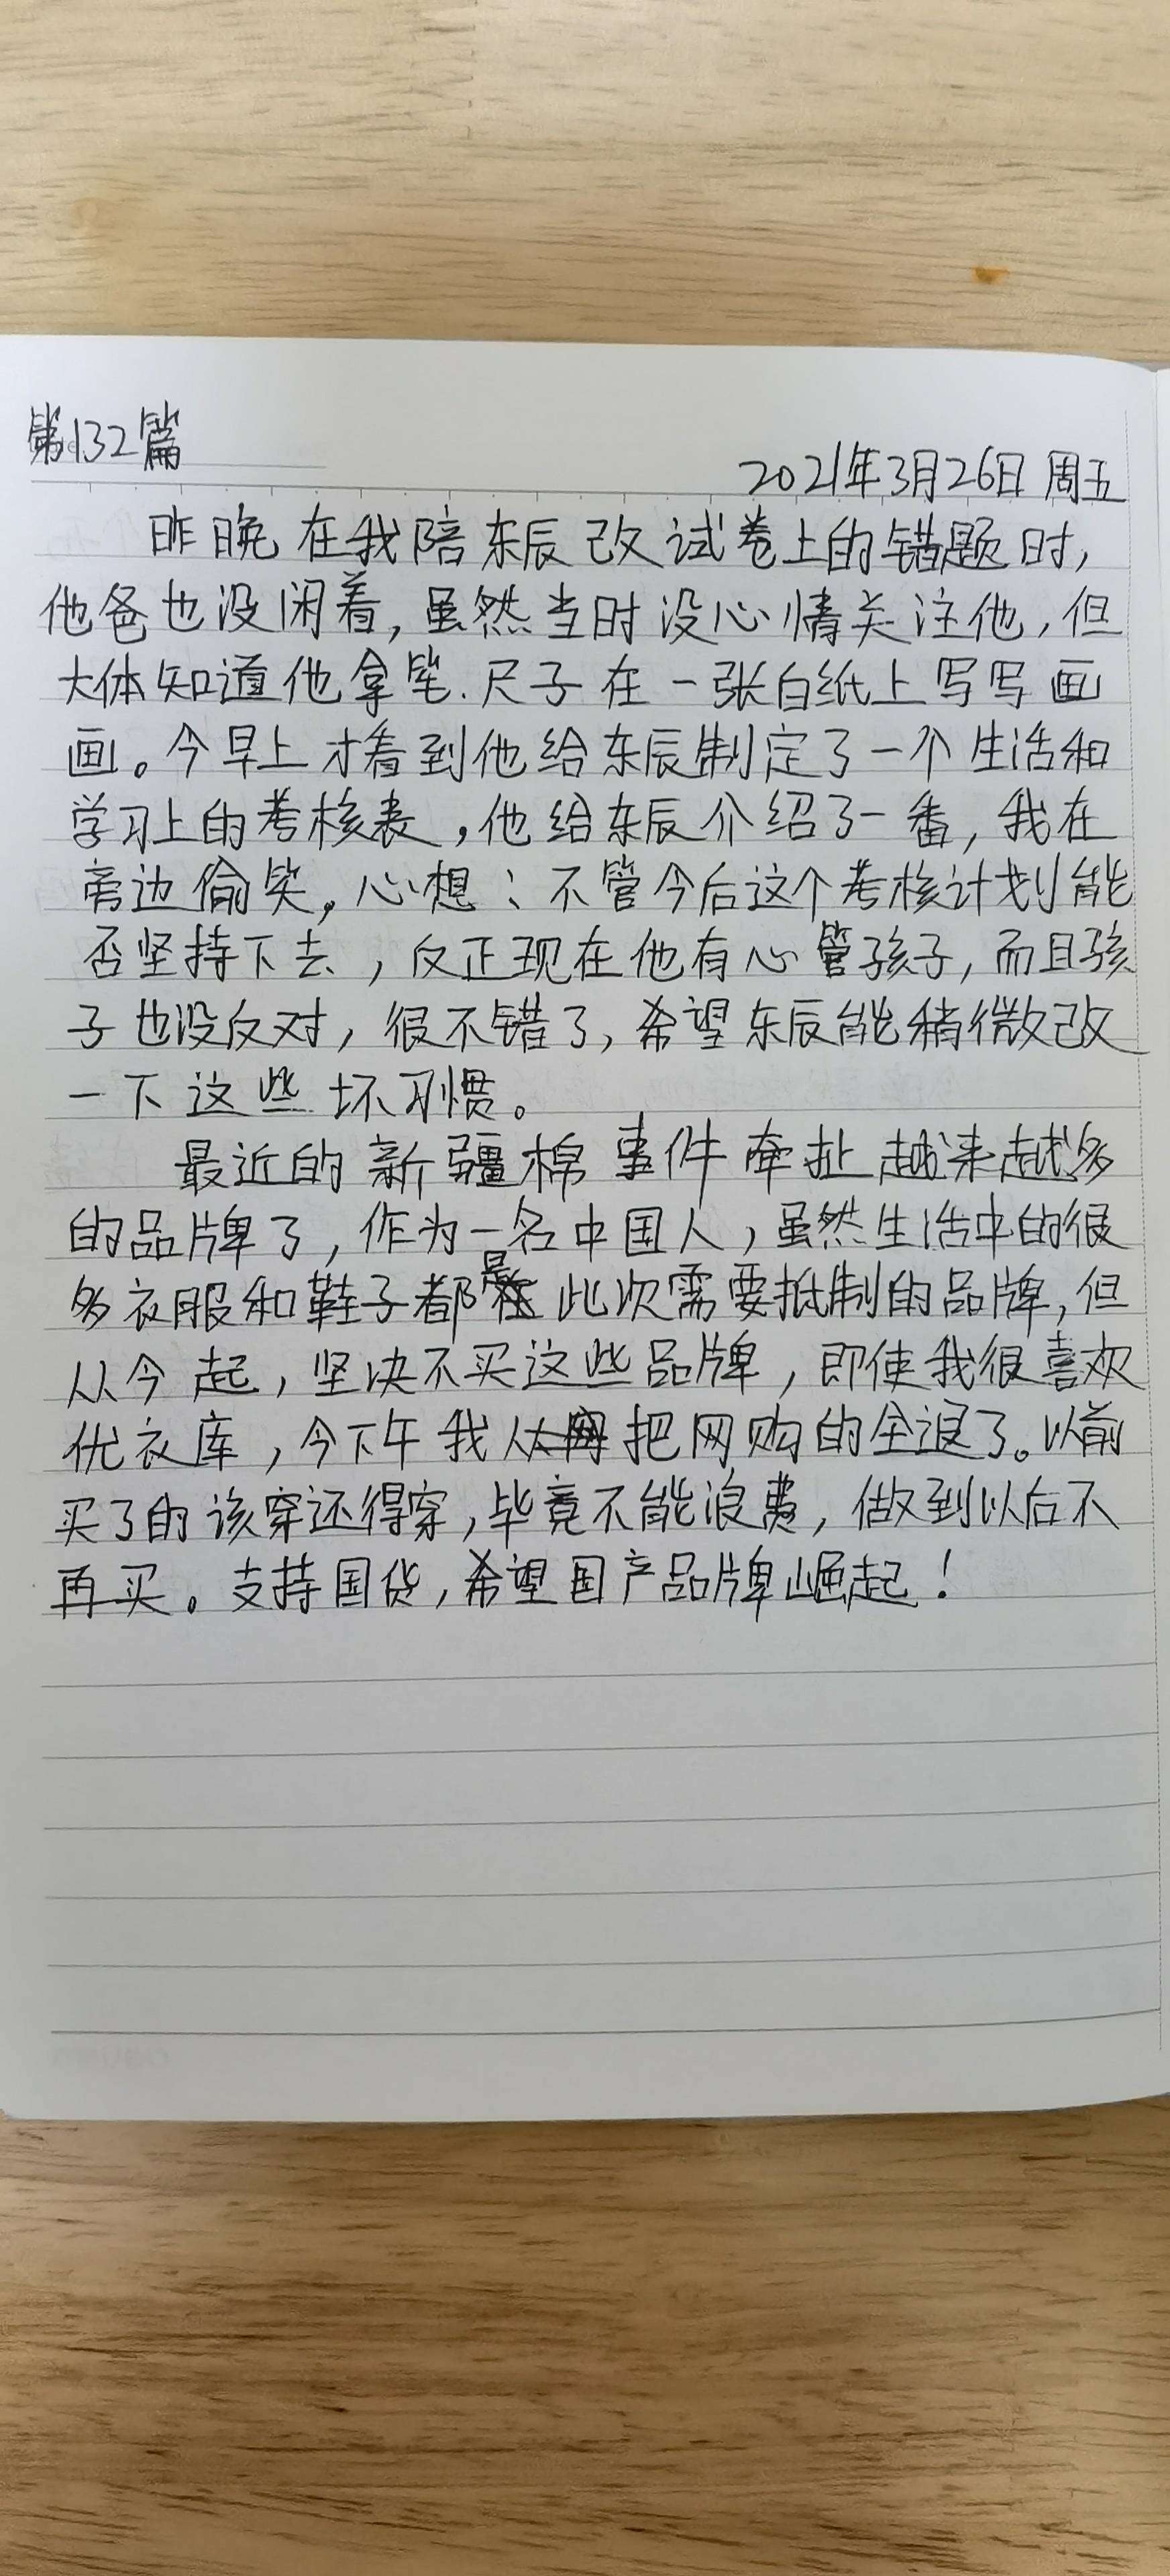 第132篇
2021年3月26日 周五
昨晚在我陪东辰改试卷上的错题时,
他爸也没闲着,虽然当时没心情关注他,但
大体知道他拿笔、尺子在一张白纸上写写画
画。今早上才看到他给东辰制定了一个生活和
学习上的考核表,他给东辰介绍了一番,我在
旁边偷笑,心想:不管今后这个考核计划能
否坚持下去,反正现在他有心管孩子,而且孩
子也没反对,很不错了,希望东辰能稍微改
一下这些坏习惯。
最近的新疆棉事件牵扯越来越多
的品牌了,作为一名中国人,虽然生活中的很
多衣服和鞋子都是此次需要抵制的品牌,但
从今起,坚决不买这些品牌,即使我很喜欢
优衣库,今下午我从把网购的全退了。以前
买了的该穿还得穿,毕竟不能浪费,做到以后不
再买。支持国货,希望国产品牌崛起!